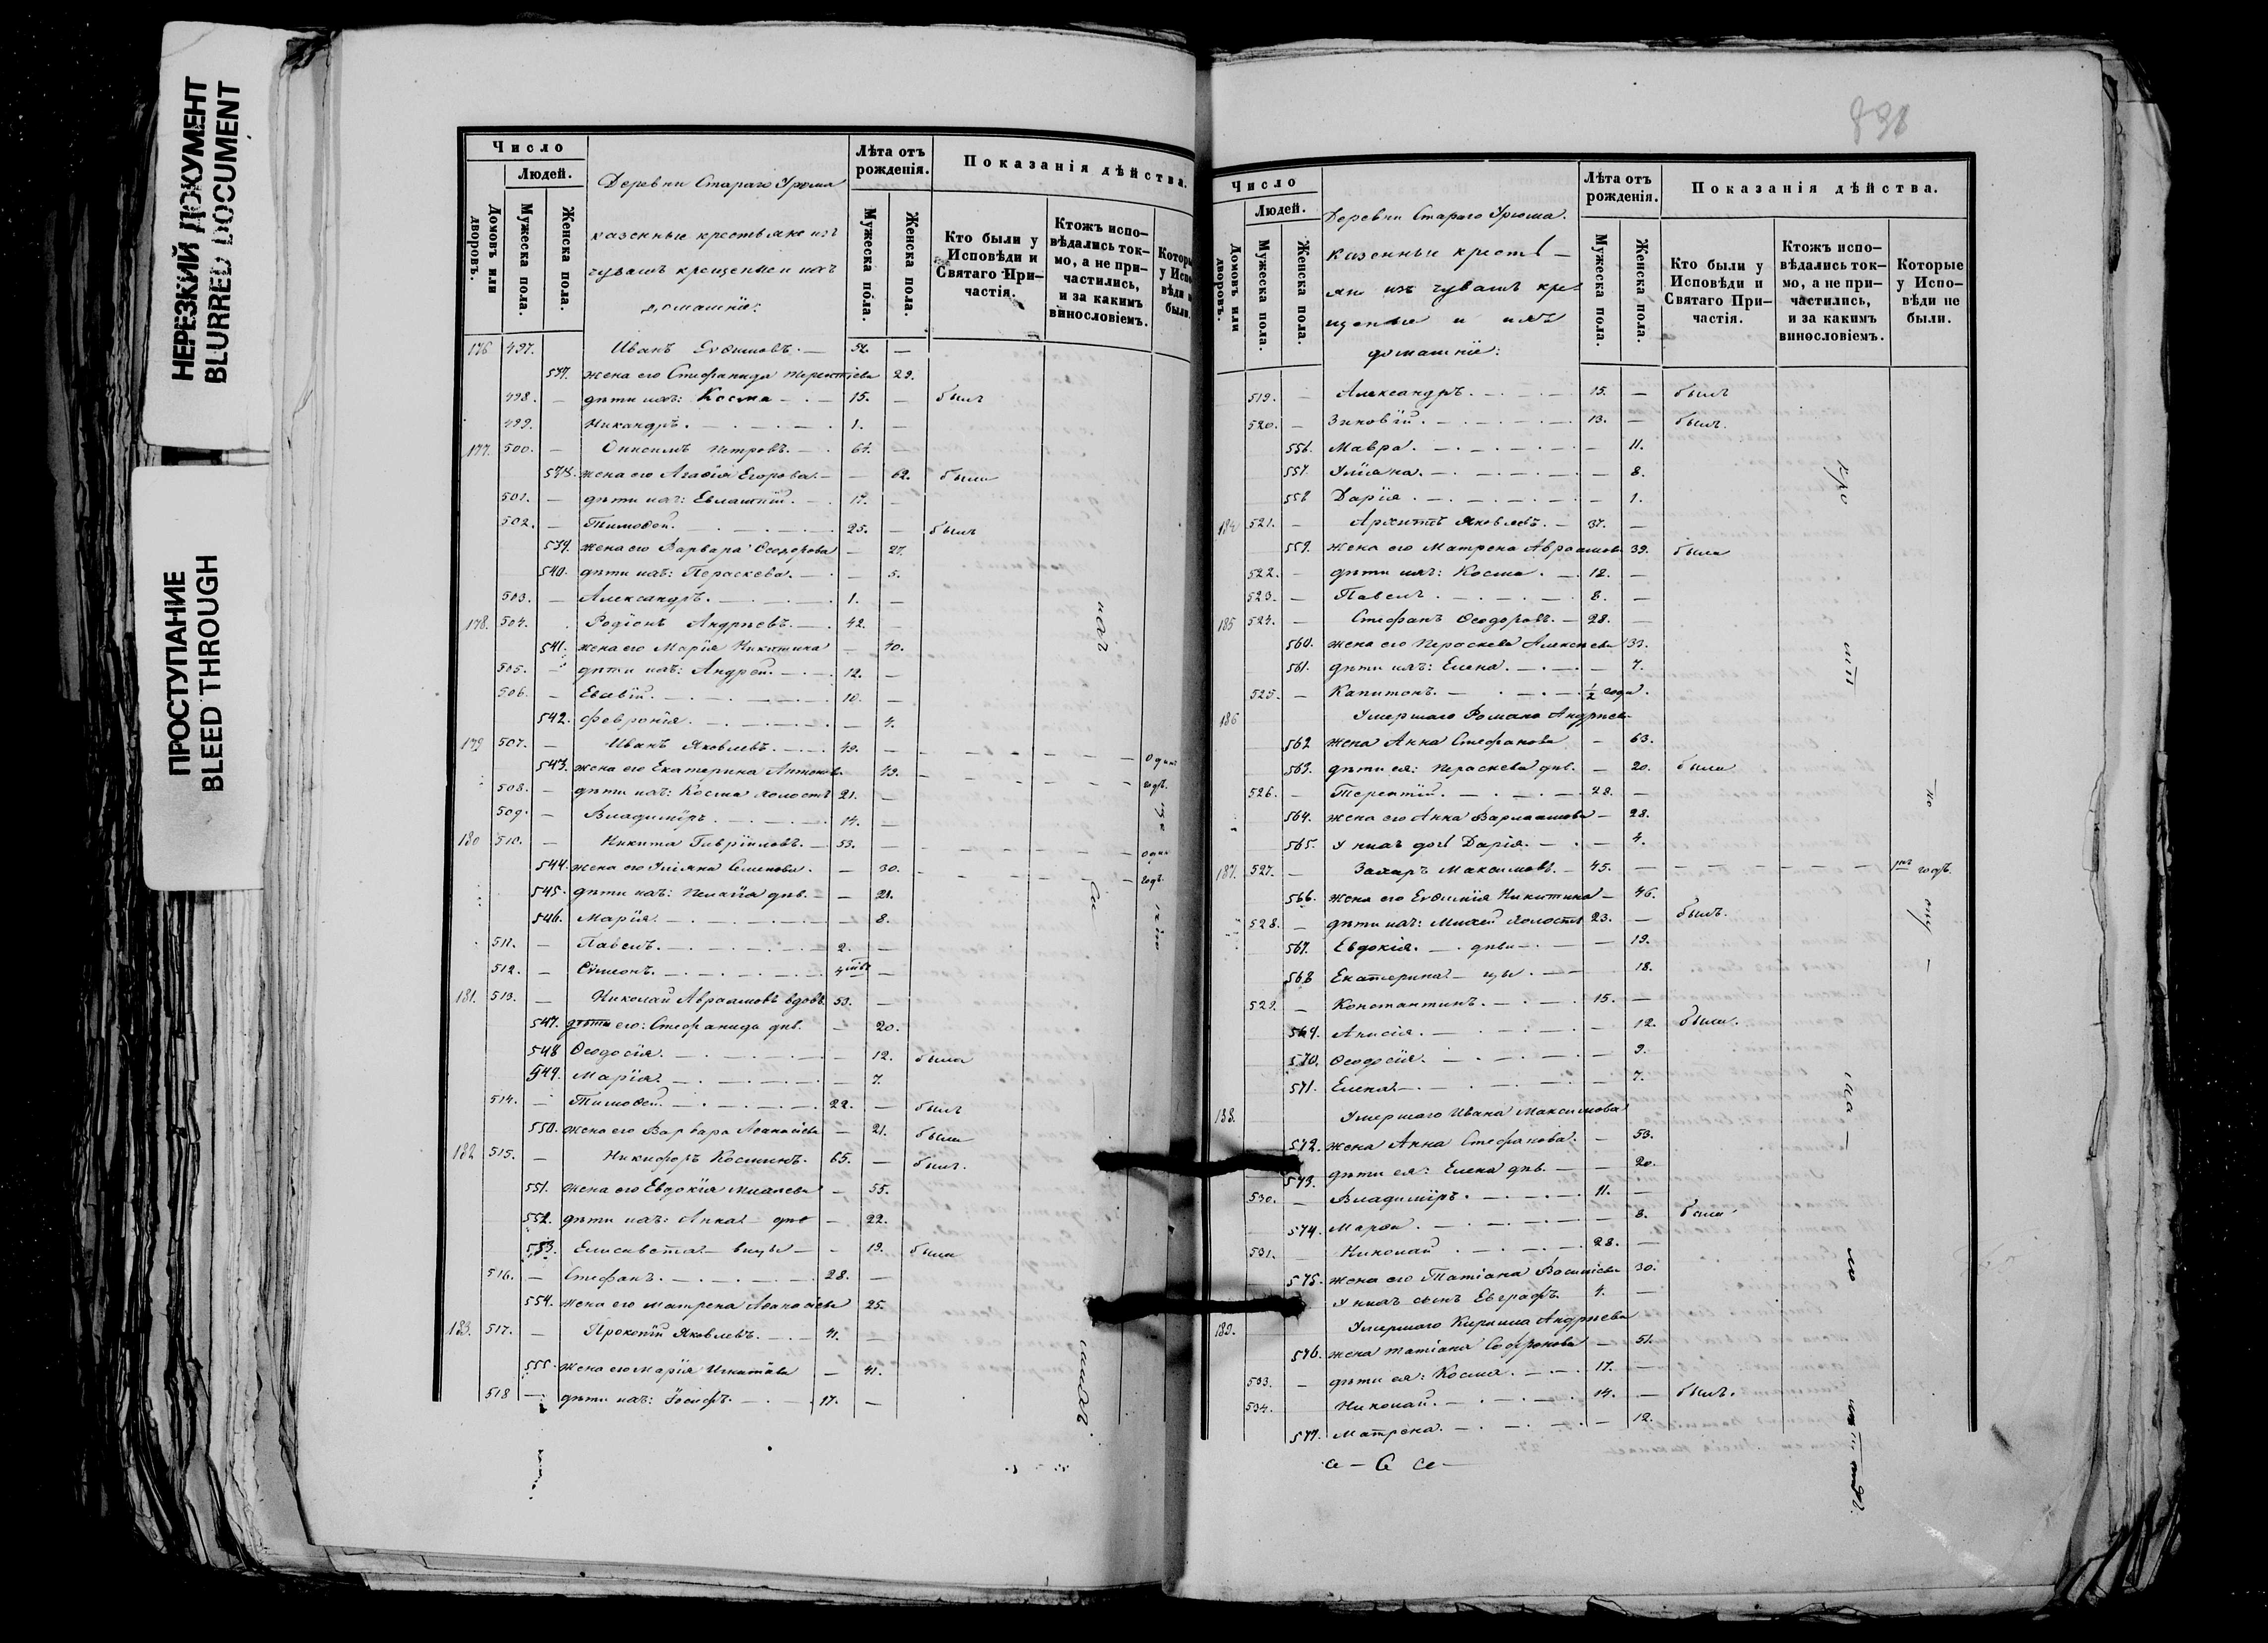 НЕРЕЗКИЙ ДОКУМЕНТ
BLURRED DOCUMENT
ПРОСТУПАНИЕ
BLEED THROUGH
Число
Людей.
Домовъ или дворовъ.
Мужеска пола.
Женска пола.
Деревни Стараго Урюма
казенные крестьяне изъ
чувашъ крещеные и ихъ
домашніе:
Лѣта отъ рожденія.
Мужеска пола.
Женска пола.
Показанія дѣйства.
Кто были у Исповѣди и Святаго При-частія.
Ктожъ испо-вѣдались ток-мо, а не при-частились, и за какимъ винословіемъ.
Которы у Испо вѣди н были.
176 497. Иванъ Евѳимовъ. 52. —
537. жена его Стефанида Терентіева 29.
498. — дѣти ихъ: Косма — 15. — былъ
499. Никандръ. 1. —
177. 500. — Онисимъ Петровъ. 64. —
578. жена его Агаѳія Егорова. — 62. были
501. — дѣти ихъ: Евлампій. 17. —
502. — Тимоѳей. 25. — былъ
539. жена его Варвара Ѳеодорова — 27.
540. дѣти ихъ: Параскева. — 5.
503. — Александръ. 1. —
178. 504. Родіонъ Андреевъ. 42. —
541. жена его Марія Никитина — 40.
505. — дѣти ихъ: Андрей. 12. —
506. — 10. —
542. Февронія. — 4.
179 507. — Иванъ Яковлевъ. 49. — одинъ
543. жена его Екатерина Антонова 49. — годъ.
508. — дѣти ихъ: Косма холостъ 21. —
509. — Владиміръ. 14. —
180 510. — Никита Гавріиловъ. — 53. — одинъ
544. жена его Уліяна Семенова. — 30. — годъ.
545. дѣти ихъ: Пелагія двв. — 21.
546. Марія. — 8.
511. — Павелъ. 2. —
512. — Сѵмеонъ. 4 —
181. 513. — Николай Авраамовъ вдовъ 53. —
547. дѣти его: Стефанида двв. — 20.
548 Ѳеодосія. — 12. была
549. Марія. — 7.
514. — Тимоѳей. 22. — былъ
550. жена его Варвара Аѳанасіева — 21. были
182 515. — Никифоръ Косминъ. 65. — былъ.
551. жена его Евдокія Михеева — 55.
552. дѣти ихъ: Анна — 22.
553. Елисавета — — 19. были
516. — Стефанъ. 28. —
554. жена его Матрена Аѳанасіева 25.
183. 517. — Прокопій Яковлевъ. 41. —
555. жена его Марія Игнатіева — 41.
518 — дѣти ихъ: Іосифъ. 17. —
Число
Людей.
Домовъ или дворовъ.
Мужеска пола.
Женска пола.
Деревни Стараго Урюма
казенные кресть—
яне изъ чувашъ кре—
щеные и ихъ
домашніе:
Лѣта отъ рожденія.
Мужеска пола.
Женска пола.
Показанія дѣйства.
Кто были у Исповѣди и Святаго При-частія.
Ктожъ испо-вѣдались ток-мо, а не при-частились, и за какимъ винословіемъ.
Которые у Испо-вѣди не были.
519. — Александръ. 15. — былъ
520. — Зиновій. 13. — былъ.
556. Мавра. — 11.
557. Уліана. — 8.
558 Дарія. — 1.
184 521. — Архиппъ Яковлевъ. — 37. —
559. жена его Матрена Авраамова 39. была
522. — дѣти ихъ: Косма. 12. —
523. — Павелъ. 8. —
185 524. — Стефанъ Ѳеодоровъ. — 28. —
560. жена его Параскева Алексѣева 33.
561. дѣти ихъ: Елена. — 7.
525. — Капитонъ. 1/2 года.
186 Умершаго Романа Андреева
562 жена Анна Стефанова — 63.
563. дѣти ея: Параскева двв. — 20. были
526. — Терентій. 28. —
564. жена его Анна Варлаамова — 28.
565. У нихъ дочь Дарія. — 4.
187. 527. — Захаръ Максимовъ. — 45. — годъ.
566. жена его Евѳимія Никитина — 46.
528. — дѣти ихъ: Михей холостъ 23. — былъ.
567. Евдокія. — 19.
568 Екатерина — 18.
529. — Константинъ. 15. —
569. Анисія. — 12. были.
570. Ѳеодосія. — 9.
571. Елена. — 7.
188. Умершаго Ивана Максимова
572. жена Анна Стефанова. — 53.
573. дѣти ея: Елена двв. — 20.
530. — Владиміръ. 11. —
574. Марѳа. — 8. была
531. — Николай 28. —
575. жена его Татіана Васильева 30.
У нихъ сынъ Евграфъ 4. —
189. Умершаго Кирилла Андреева
576. жена Татіана Софронова — 51.
533. — дѣти ея: Косма. 17. —
534. Николай. 14. — былъ.
577. Матрена. — 12.